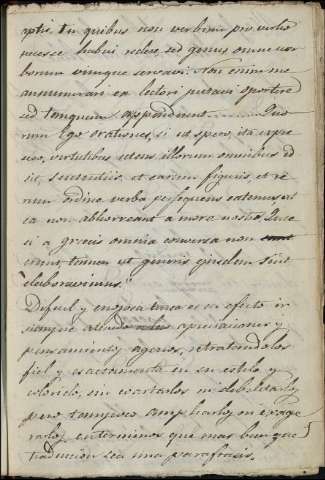 aptis. In quibus non verbum pro verbo
necesse habui reddere, sed genus omne ver-
borum vimque servavi. Non enim me
annumerari ea lectori putavi oportere
sed tanquam appendere ........ Quo
rum Ego orationes, si ut spero, ita expre
sero, virtutibus utens illorum omnibus id
est, sententiis et earum figuris et re
rum ordine verba persequens eatenus, ut
ea non abhorreant a more nostro. Quae
si a graecis omnia conversa non
erunt tamen ut generis ejusdem sint
elaboravimus."
Dificil y enojosa tarea es en efecto ir
siempre apreciaciones y
pensamientos agenos, retratandolos
fiel y exactamente en su estilo y
colorido, sin cortarlos ni debilitarlos,
pero tampoco ampliarlos, ni exage
rarlos, en terminos que mas bien que
traduccion sea una parafrasis.